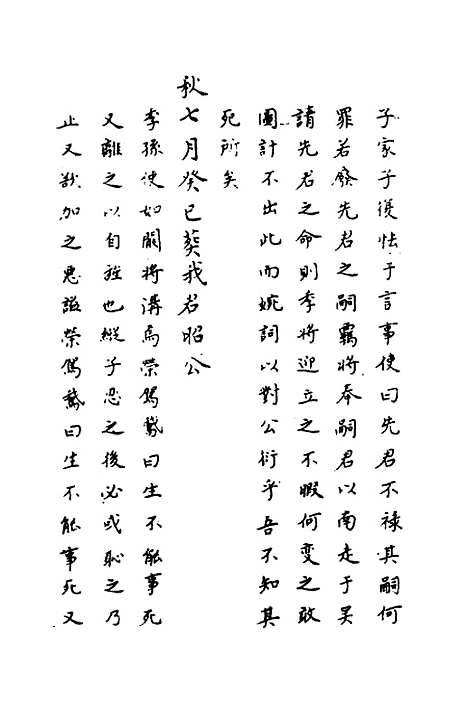 子家子復怯于言事使曰先君不祿其嗣何
罪若廢先君之嗣羈將奉嗣君以南走于吳
請先君之命則季將迎立之不暇何變之敢
圖計不出此而婉詞以對公衍乎吾不知其
死所矣
秋七月癸巳葬我君昭公
季孫使如闞將溝焉榮駕鵞曰生不能事死
又離之以自旌也縱子忍之後必或恥之乃
止又欲加之惡謚榮駕鵞曰生不能事死又